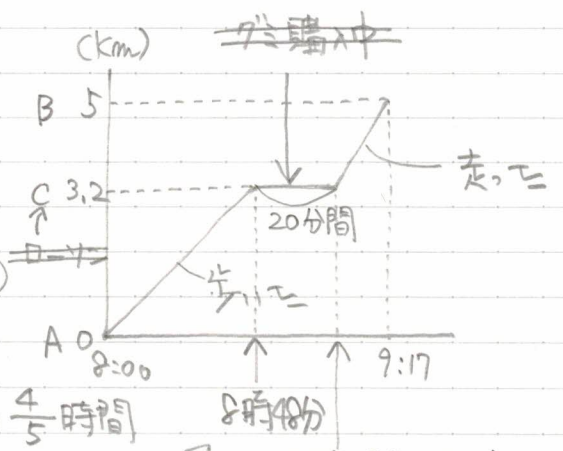 (km)
グミ購入中
B 5
C 3.2
走って
20分間
歩いて
A 0
8:00
9:17
4/5 時間
8時48分